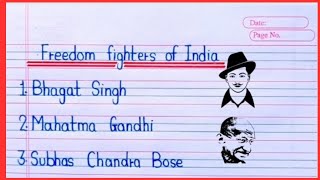 Date:
Page No.
Freedom fighters of India
1. Bhagat Singh
2. Mahatma Gandhi
3. Subhas Chandra Bose